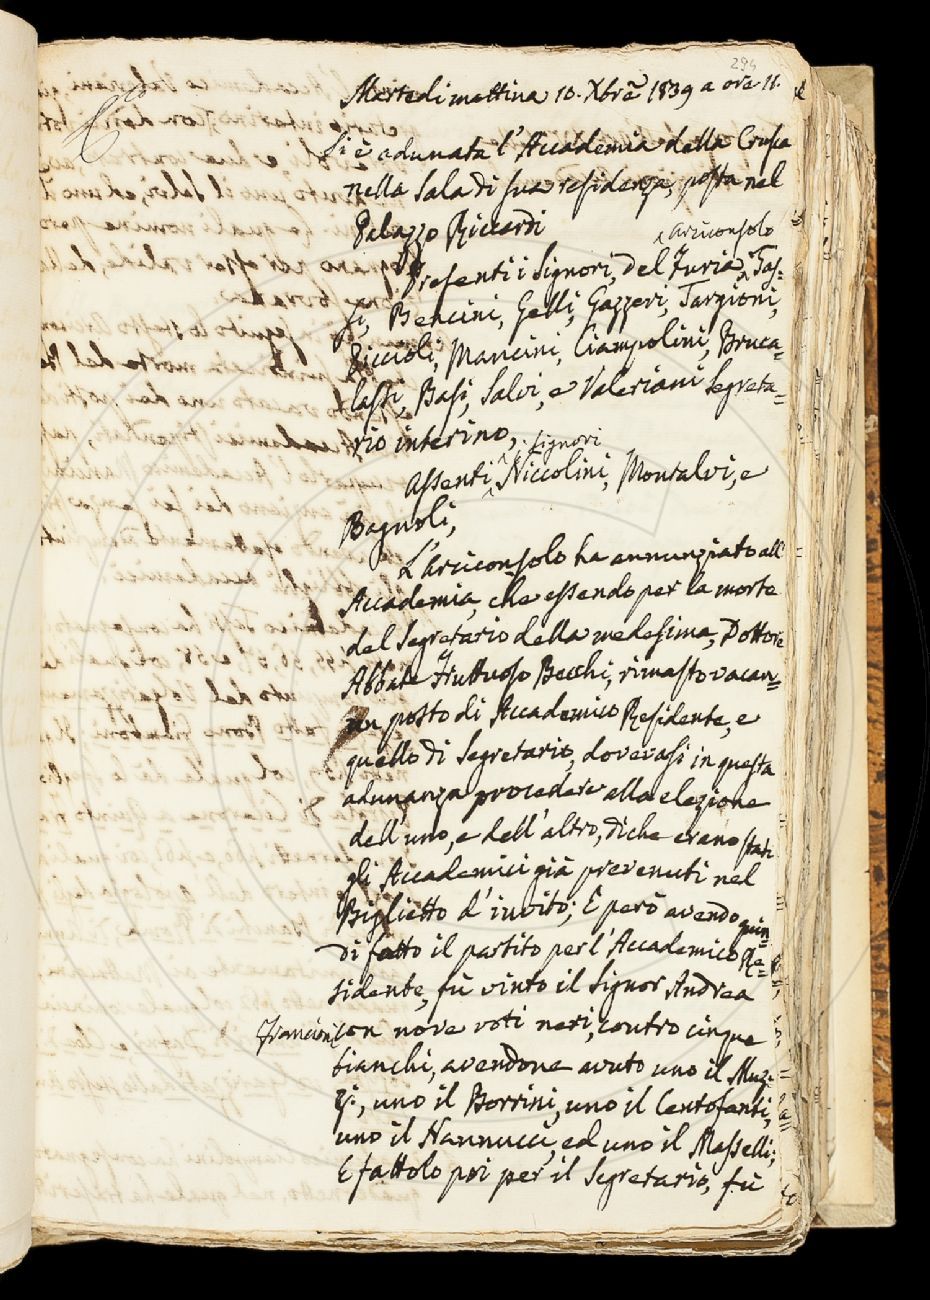 294
Martedi mattina 10. Xbrē 1839 a ore 11.
Si è adunata l'Accademia della Crusca
nella Sala di sua residenza, posta nel
Palazzo Riccardi
Presenti i Signori, del Furia, arciconsolo Tas=
si, Bencini, Gelli, Gazzeri, Targioni,
Riccioli, Mancini, Ciampolini, Bruca=
lassi, Basi, Salvi, e Valeriani Segreta=
rio interino,
Assenti, Signori Niccolini, Monsalvi, e
Bagnoli,
L'arciconsolo ha annunziato all'
Accademia, che essendo per la morte
del Segretario della medesima, Dottore
Abbate Fruttuoso Becchi, rimasto vacan=
un posto di Accademico Residente, e
quello di Segretario, dovevasi in questa
adunanza procedere alla elezione
dell'uno, e dell'altro, di che erano stati
gli Accademici già prevenuti nel
Biglietto d'invito; E però avendo quin=
di fatto il partito per l'Accademico Re=
sidente, fù vinto il Signor Andrea
Francioni con nove voti neri, contro cinque
bianchi, avendone avuto uno il Muz=
zi, uno il Borrini, uno il Centofanti,
uno il Nannucci, ed uno il Masselli;
E fattolo poi per il Segretario, fù